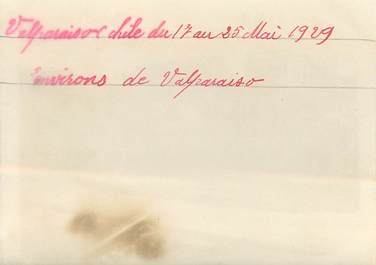 Valparaiso chile du 17 au 25 Mai 1929
environs de Valparaiso